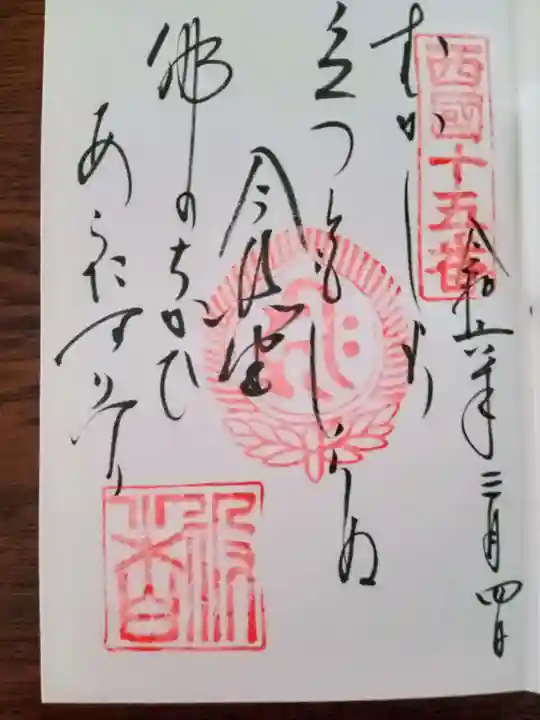 西國十五番
三月四日
むかしより
立つともしらぬ
今熊野
佛のちかひ
あらたなりけり